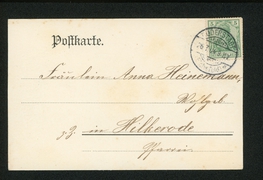 Postkarte.
Fräulein Anna Heinemann,
z. Z. in Hilkerode
Pfarrei.